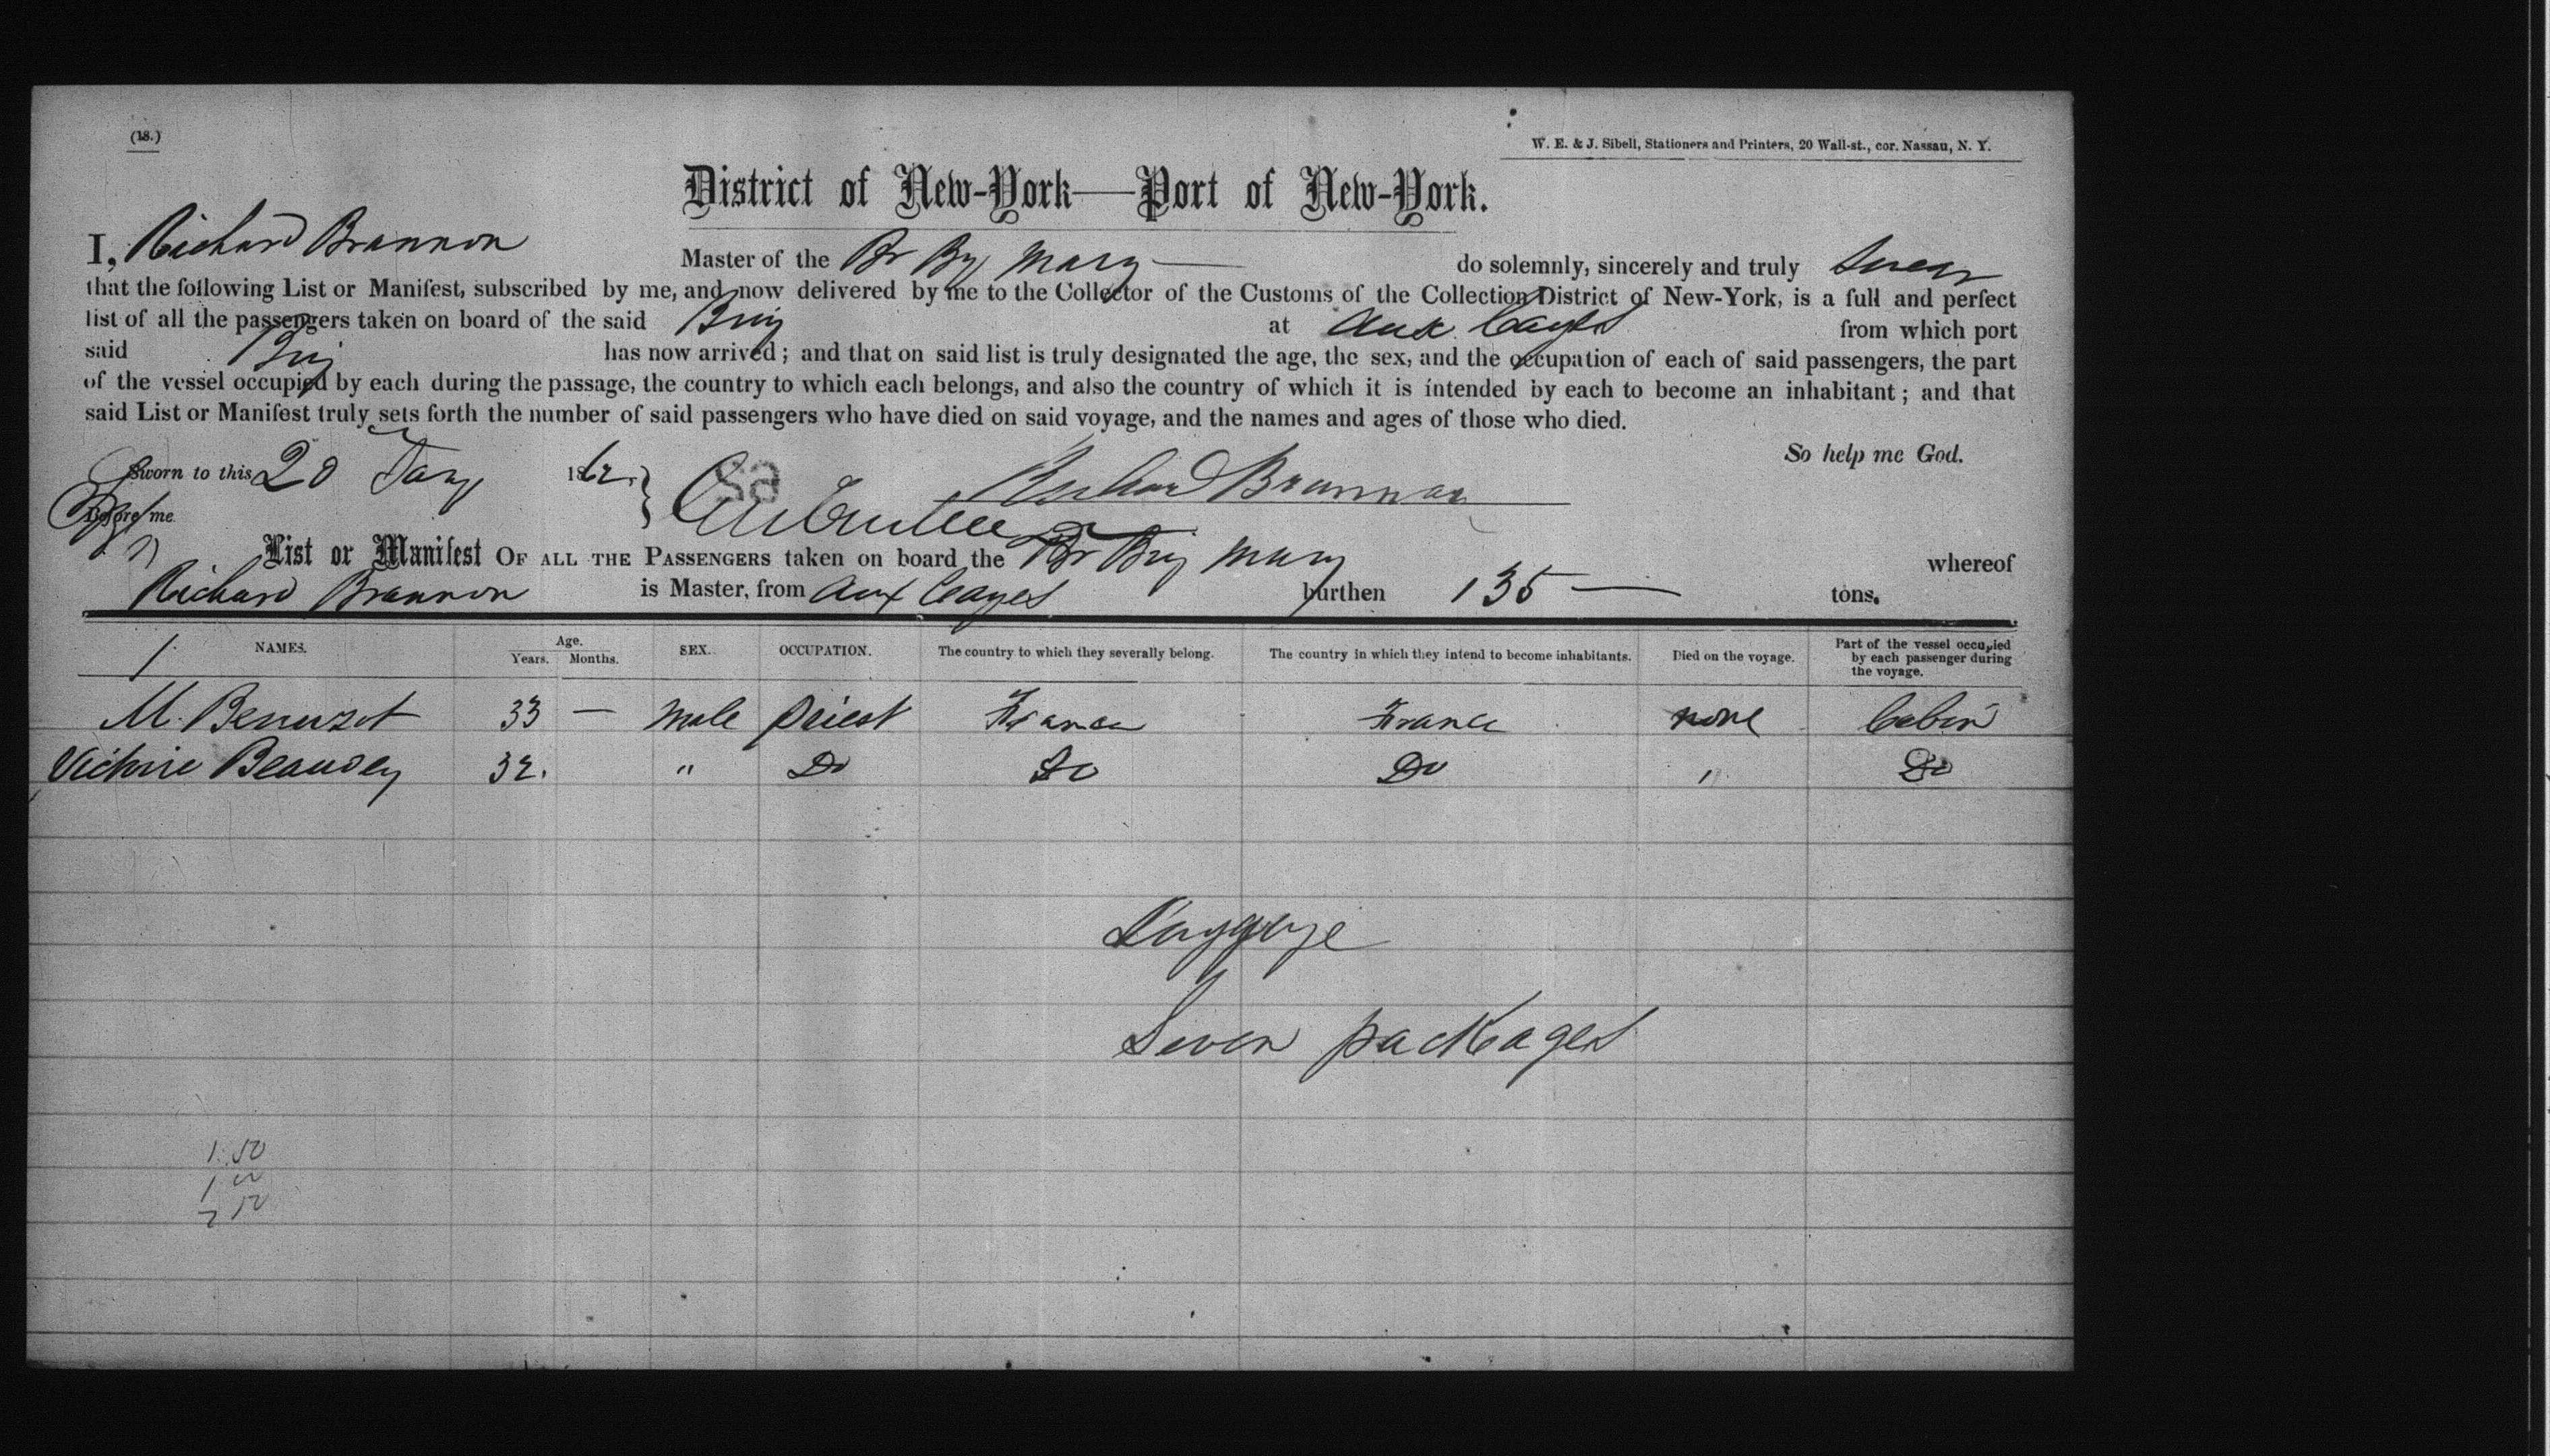 (18.)
W. E. & J. Sibell, Stationers and Printers, 20 Wall-st., cor. Nassau, N. Y.
District of New-York—Port of New-York.
I, Richard Brannon Master of the Br Bg Mary do solemnly, sincerely and truly swear
that the following List or Manifest, subscribed by me, and now delivered by me to the Collector of the Customs of the Collection District of New-York, is a full and perfect
list of all the passengers taken on board of the said Brig at Aux Cayes from which port
said Brig has now arrived; and that on said list is truly designated the age, the sex, and the occupation of each of said passengers, the part
of the vessel occupied by each during the passage, the country to which each belongs, and also the country of which it is intended by each to become an inhabitant; and that
said List or Manifest truly sets forth the number of said passengers who have died on said voyage, and the names and ages of those who died.
So help me God.
Sworn to this 20 Jany 1862 Richard Brannon
Before me
List or Manifest OF ALL THE PASSENGERS taken on board the Br Brig Mary whereof
Richard Brannon is Master, from Aux Cayes burthen 135 — tons.
NAMES. Age. Years. Months. SEX. OCCUPATION. The country to which they severally belong. The country in which they intend to become inhabitants. Died on the voyage. Part of the vessel occupied by each passenger during the voyage.
M. 33 — Male Priest France France none Cabin
Victorie 32. " Do Do Do " Do
Luggage
Seven packages
1.50
1
2 50